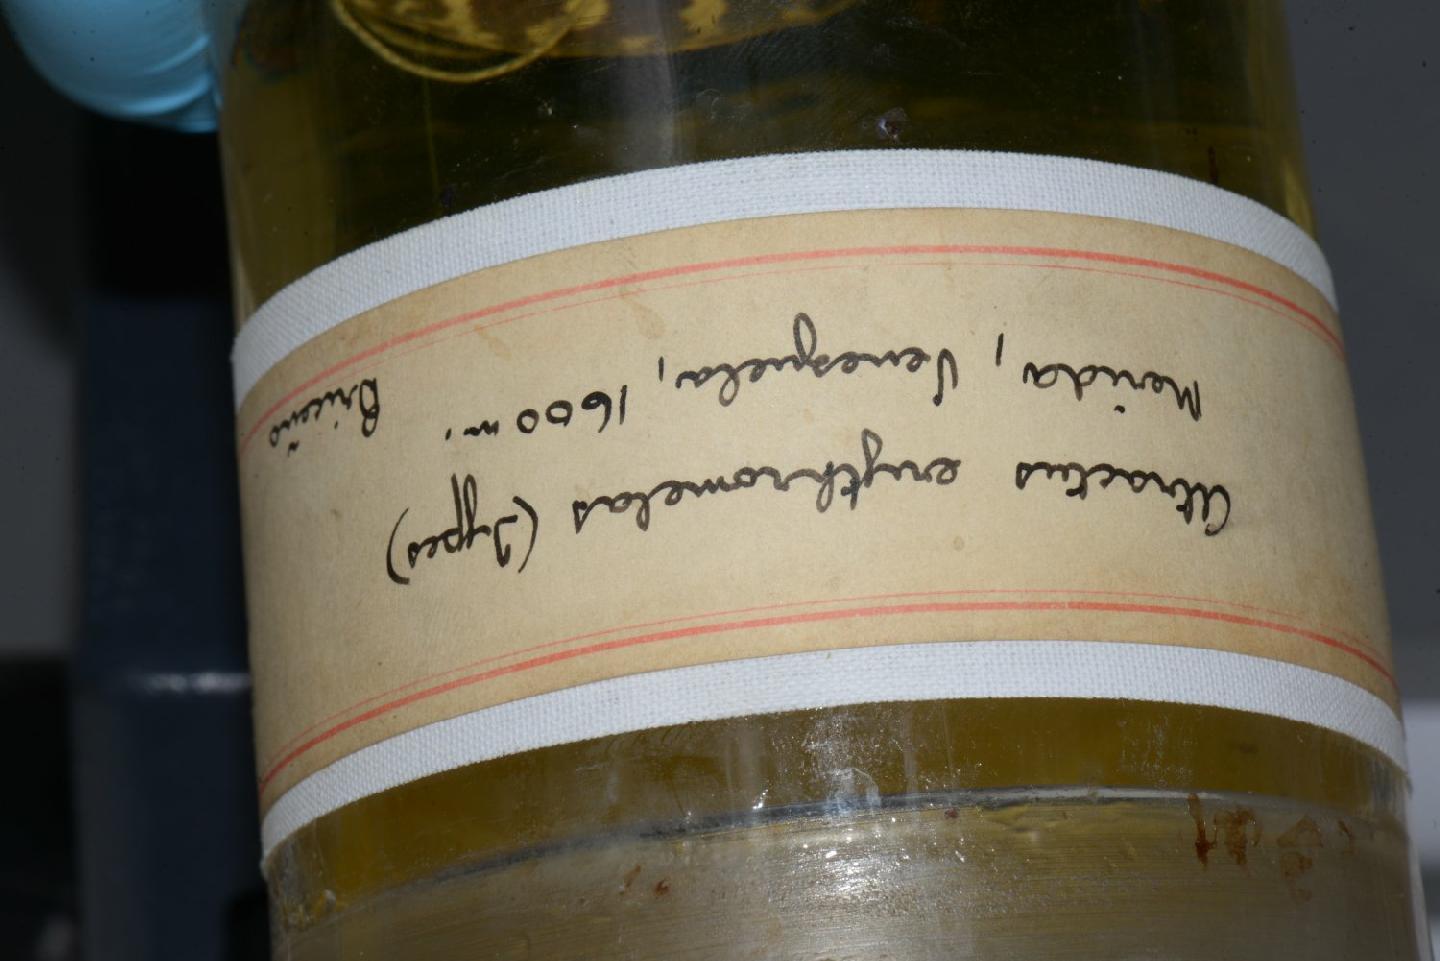 Atractus erythromelas (Types)
Merida, Venezuela, 1600 m. Briceño